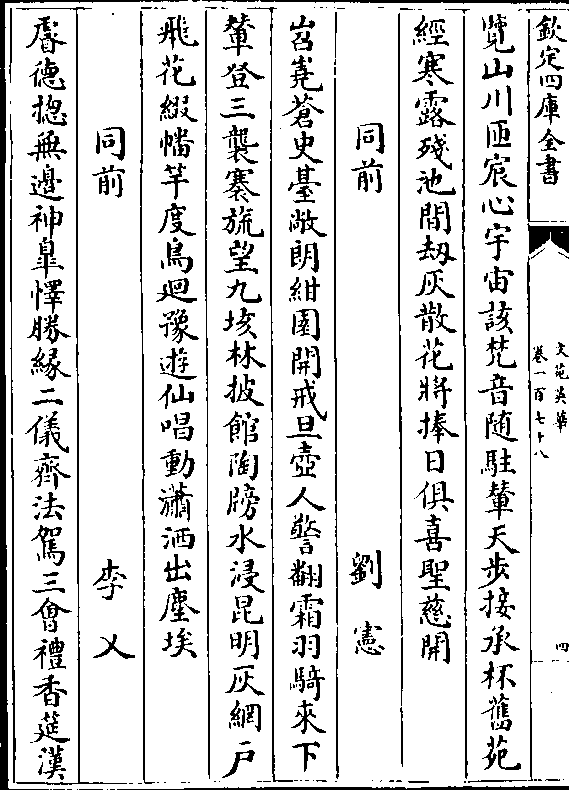 欽定四庫全書
文苑英華
卷一百七十八
四
覽山川匝宸心宇宙該梵音隨駐輦天步接承杯舊苑
經寒露殘池間劫灰散花將捧日俱喜聖慈開
同前 劉憲
岧嶤蒼史臺敞朗紺園開戒旦壺人警翻霜羽騎來下
輦登三襲褰旒望九垓林披館陶牓水浸昆明灰網户
飛花綴幡竿度鳥迴豫遊仙唱動瀟洒出塵埃
同前 李乂
睿德揔無邊神臯懌勝縁二儀齊法駕三會禮香筵漢